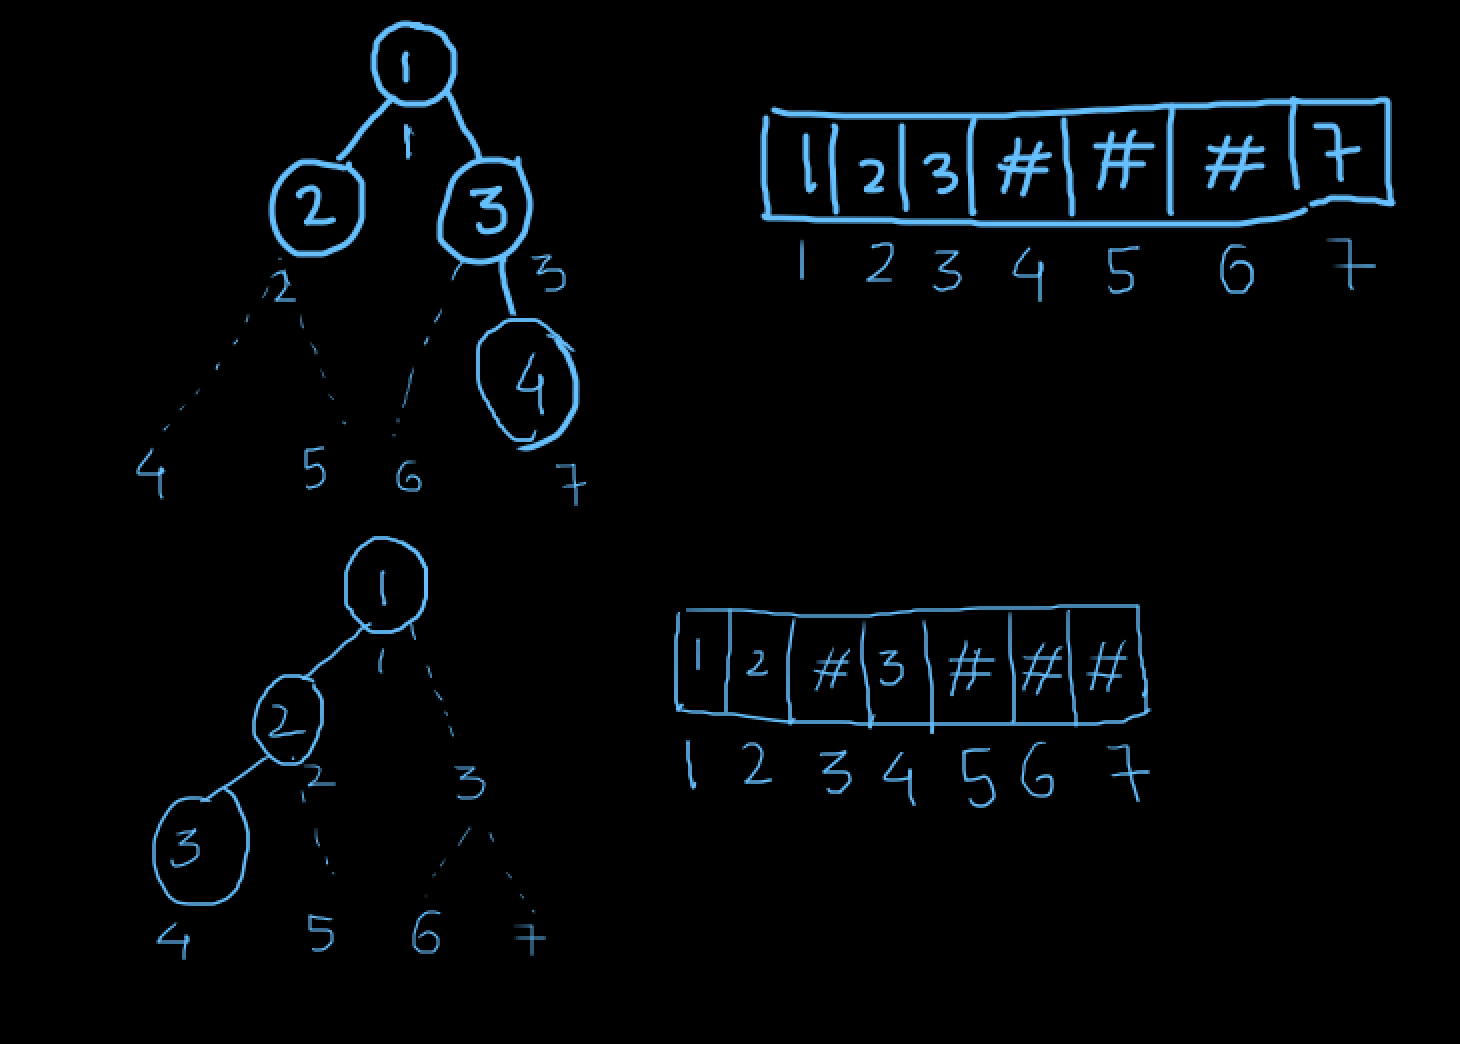 1
1
2 3
2 3
4
4 5 6 7
1 2 3 # # # 7
1 2 3 4 5 6 7
1
1
2
2 3
3
4 5 6 7
1 2 # 3 # # #
1 2 3 4 5 6 7